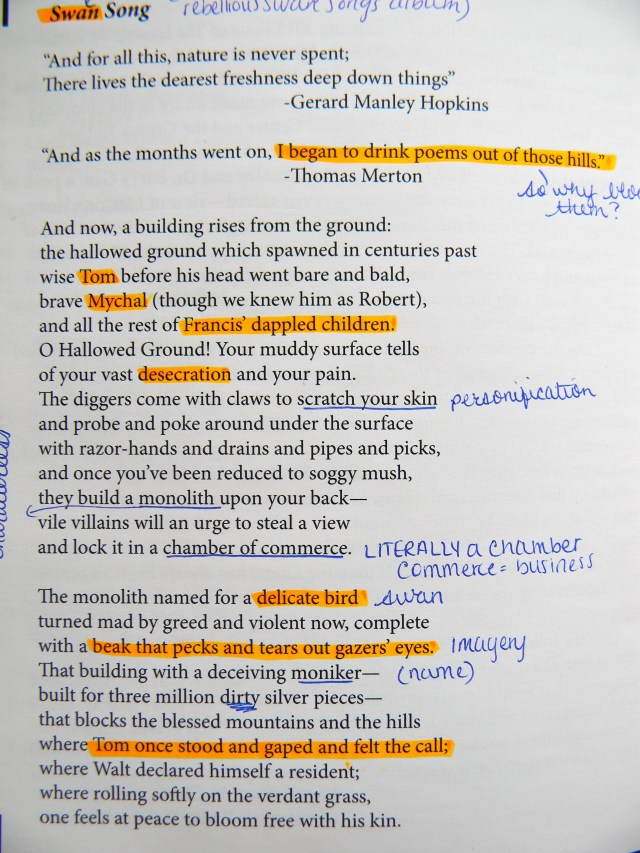 Swan Song rebellious swan songs album)
“And for all this, nature is never spent;
There lives the dearest freshness deep down things”
-Gerard Manley Hopkins
“And as the months went on, I began to drink poems out of those hills.”
-Thomas Merton
so why
them?
And now, a building rises from the ground:
the hallowed ground which spawned in centuries past
wise Tom before his head went bare and bald,
brave Mychal (though we knew him as Robert),
and all the rest of Francis’ dappled children.
O Hallowed Ground! Your muddy surface tells
of your vast desecration and your pain.
The diggers come with claws to scratch your skin personification
and probe and poke around under the surface
with razor-hands and drains and pipes and picks,
and once you’ve been reduced to soggy mush,
they build a monolith upon your back—
vile villains will an urge to steal a view
and lock it in a chamber of commerce. LITERALLY a chamber
commerce = business
The monolith named for a delicate bird swan
turned mad by greed and violent now, complete
with a beak that pecks and tears out gazers’ eyes. Imagery
That building with a deceiving moniker— (name)
built for three million dirty silver pieces—
that blocks the blessed mountains and the hills
where Tom once stood and gaped and felt the call;
where Walt declared himself a resident;
where rolling softly on the verdant grass,
one feels at peace to bloom free with his kin.